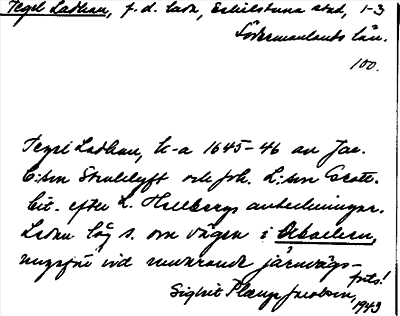 Tegel Ladhan, f.d. lada, Eskilstuna stad, 1-3
Södermanlands län.
100.
Tegel Ladhan, k-a 1645-46 av Jac.
C:son Strålelyft och Joh. L:son Grott.
Cit. efter L. Hellbergs anteckningar.
Ladan låg s. om vägen i
ungefär vid nuvarande järnvägs-
Sigbrit Plænge Jacobson, 1943